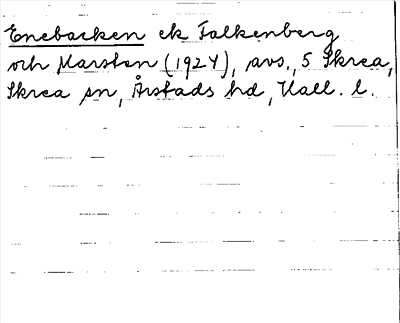 Enebacken ek Falkenberg
och Marsten (1924), avs. 5 Skrea,
Skrea sn, Årstads hd, Hall. l.